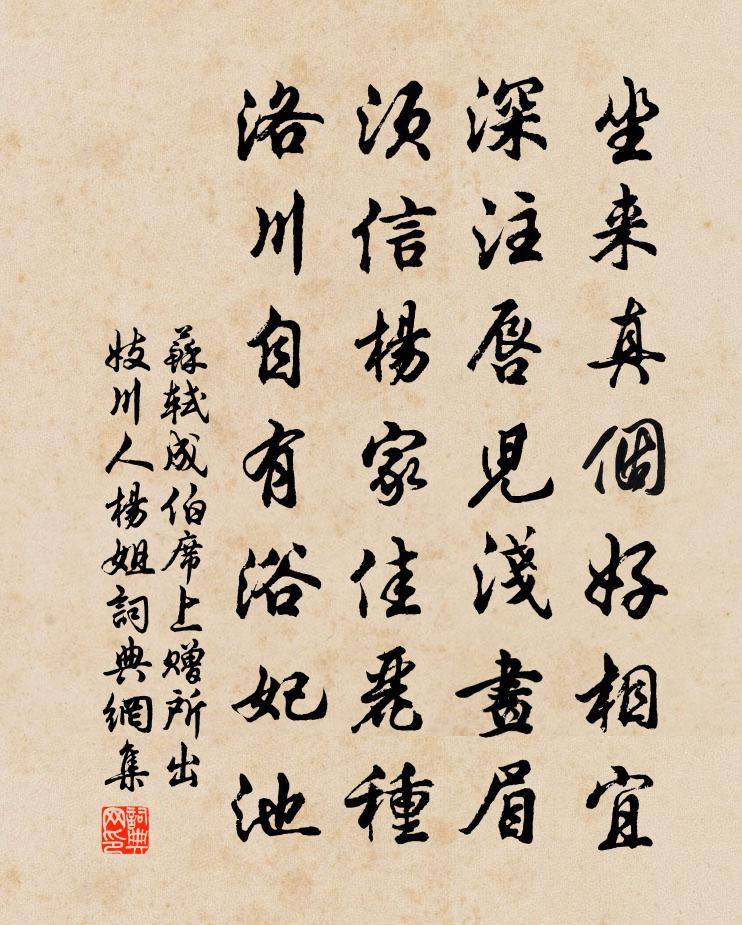 坐来真個好相宜
深注唇兒淺畫眉
須信楊家佳麗種
洛川自有浴妃池
蘇軾成伯席上赠所出
妓川人楊姐詞典網集
詞典
网印